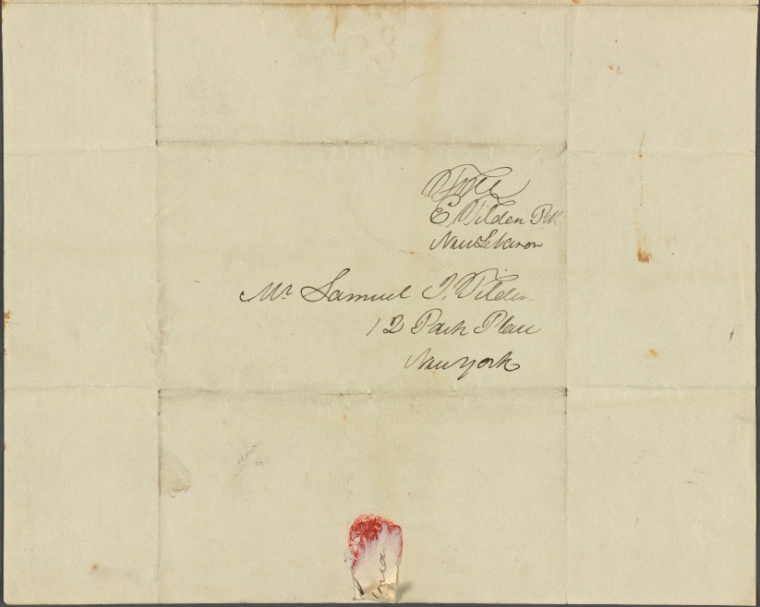 Free
E. Tilden P.M.
New Lebanon
Mr. Samuel J. Tilden
12 Park Place
New York